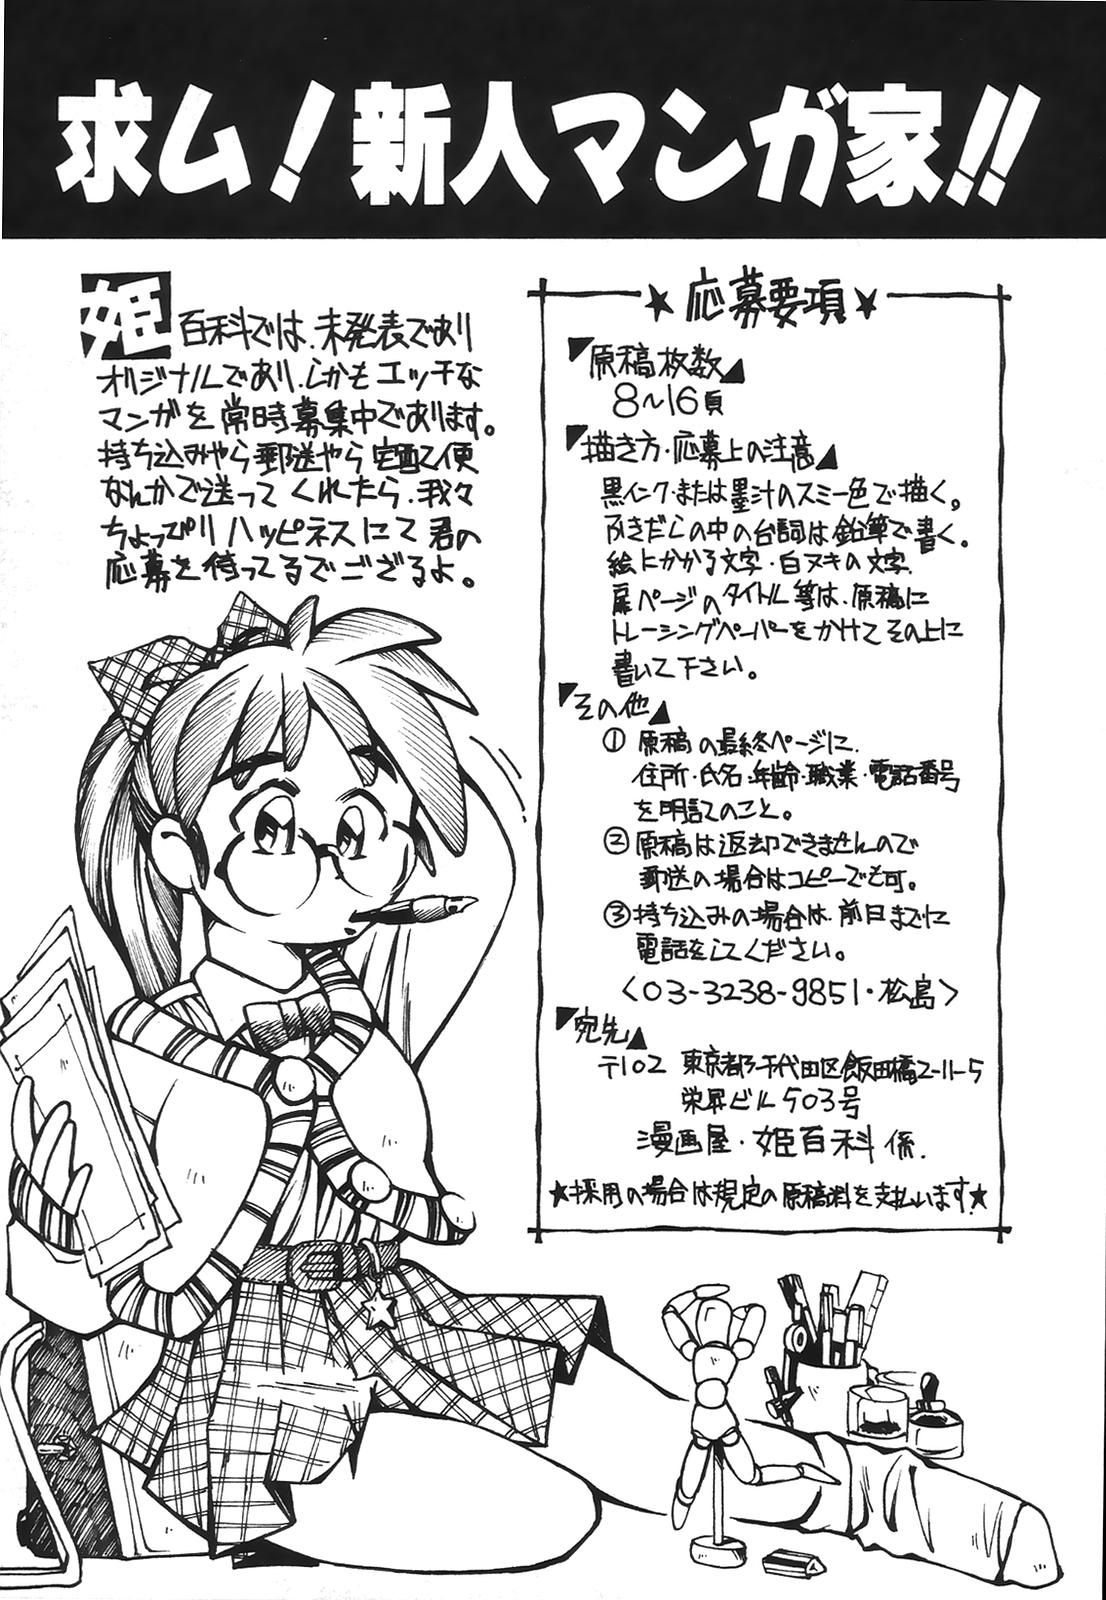 求ム！新人マンガ家!!
姫百科では、未発表であり
オリジナルであり、しかもエッチな
マンガを常時募集中であります。
持ち込みやら郵送やら宅配便
なんかで送ってくれたら、我々
ちょっぴりハッピネスにて君の
応募を待ってるでござるよ。
★応募要項★
原稿枚数
8〜16頁
描き方・応募上の注意
黒インクまたは墨汁のスミ一色で描く。
ふきだしの中の台詞は鉛筆で書く。
絵にかかる文字・白ヌキの文字、
扉ページのタイトル等は、原稿に
トレーシングペーパーをかけてその上に
書いて下さい。
その他
① 原稿の最終ページに、
住所・氏名・年齢・職業・電話番号
を明記のこと。
② 原稿は返却できませんので
郵送の場合はコピーでも可。
③ 持ち込みの場合は、前日までに
電話をしてください。
〈03-3238-9851・松島〉
宛先
〒102 東京都千代田区飯田橋2-11-5
栄昇ビル503号
漫画屋・姫百科係.
★採用の場合は規定の原稿料を支払います★